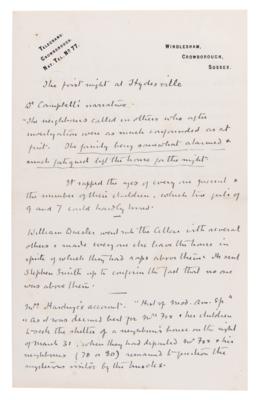 TELEGRAMS:
CROWBOROUGH.
NAT. TEL. No 77.
WINDLESHAM,
CROWBOROUGH,
SUSSEX.
The first night at Hydesville
Dr Campbell's narrative.
"The neighbours called in others who after
investigation were as much confounded as at
first. The family being somewhat alarmed &
much fatigued left the house for the night
It rapped the ages of every one present &
the number of their children, which two girls of
9 and 7 could hardly have.
William Duesler went into the Cellar with several
others & made every one else leave the house in
spite of which they had raps above them. He sent
Stephen Smith up to confirm the fact that no one
was above them.
Mrs Hardinge's account. "Hist of Mod. Am. Sp"
"As it was deemed best for Mrs Fox & her children
to seek the shelter of a neighbour's house on the night
of March 31 when they had departed Mr Fox & his
neighbours (70 or 80) remained to question the
mysterious visitor by the knocks.